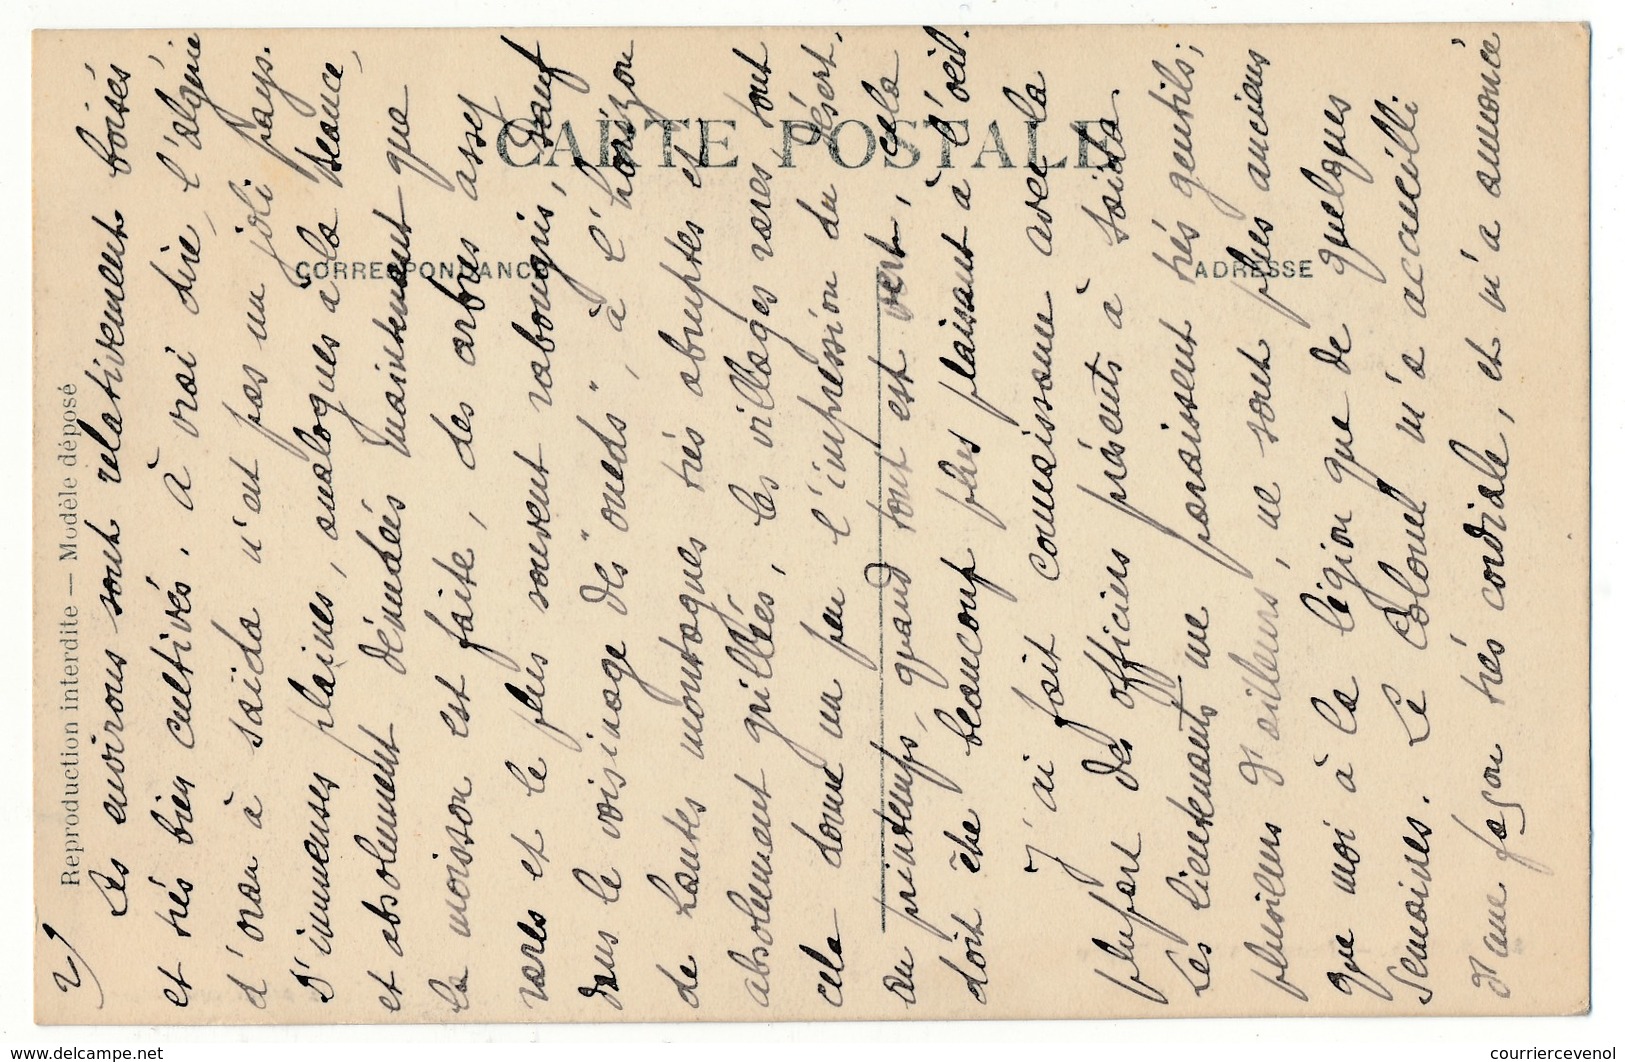 2)
Reproduction interdite — Modèle déposé
CARTE POSTALE
CORRESPONDANCE
ADRESSE
Les environs sont relativement boisés
et très bien cultivés. À vrai dire, l'algérie
d'oran à saïda n'est pas un joli pays.
D'immenses plaines, analogues à la Beauce,
et absolument dénudées maintenant que
la moisson est faite, des arbres assez
rares et le plus souvent rabougris, sauf
dans le voisinage des "oueds", à l'horizon
de hautes montagnes très abruptes et
absolument grillées, les villages rares tout
cela donne un peu l'impression du désert.
Au printemps, quand tout est vert, cela
doit être beaucoup plus plaisant à l'oeil.
J'ai fait connaissance avec la
plupart des officiers présents à saïda.
Les lieutenants me paraissent très gentils;
plusieurs d'ailleurs, ne sont plus anciens
que moi à la légion que de quelques
semaines. Le Colonel m'a accueilli
d'une façon très cordiale, et m'a annoncé
courriercevenol
www.delcampe.net